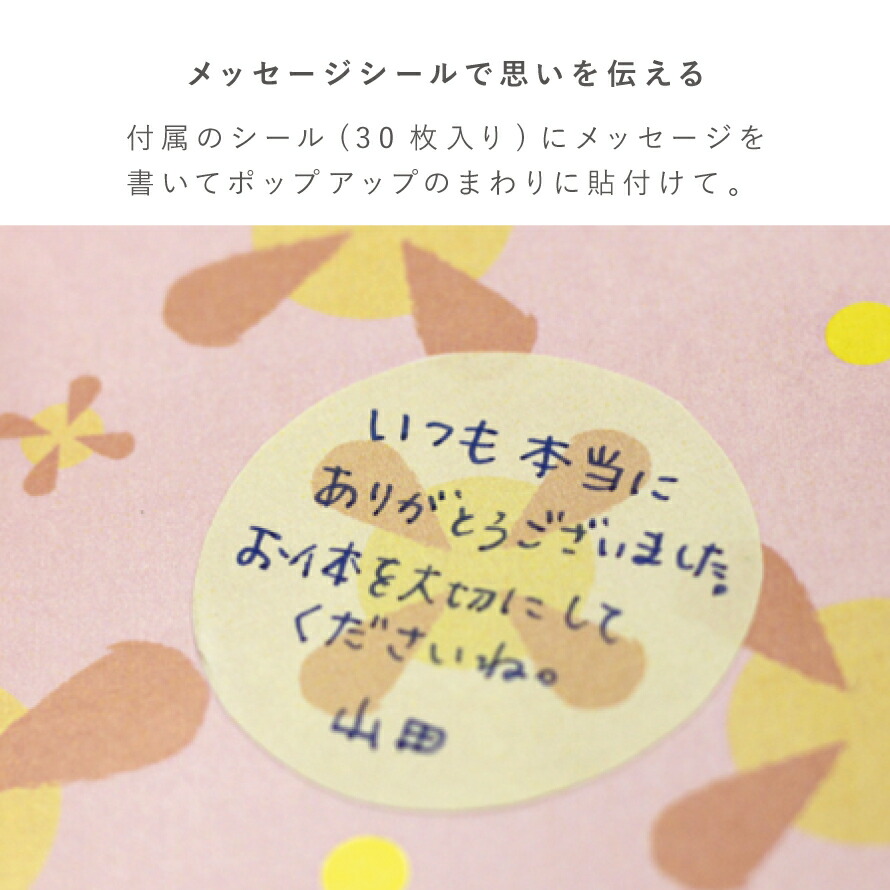 メッセージシールで思いを伝える
付属のシール(30枚入り)にメッセージを
書いてポップアップのまわりに貼付けて。
いつも本当に
ありがとうございました。
お体を大切にして
くださいね。
山田